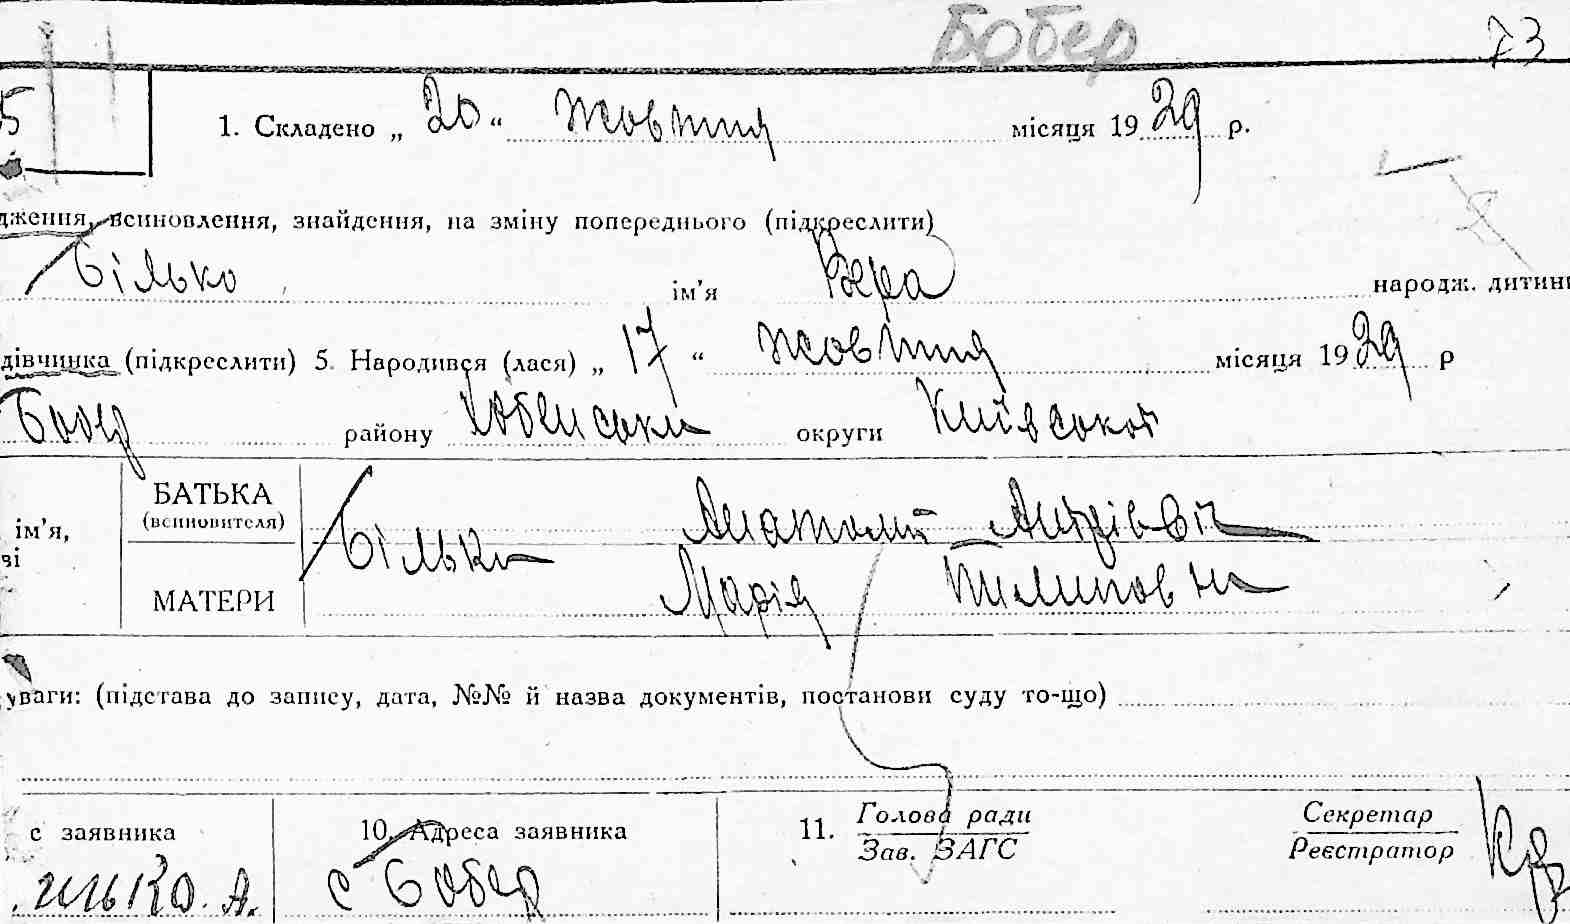 Бобер 73
5
1. Складено „ 20 “ жовтня місяця 1929 р.
дження, всиновлення, знайдення, на зміну попереднього (підкреслити)
Білько ім’я Вера народж. дитини
дівчинка (підкреслити) 5. Народився (лася) „ 17 “ жовтня місяця 1929 р
Бобер району округи Київської
БАТЬКА
(всиновителя)
Анатолій Андрієвіч
ім’я,
ві
Білько
МАТЕРИ Марія Пилиповна
уваги: (підстава до запису, дата, №№ й назва документів, постанови суду то-що)
с заявника 10. Адреса заявника 11. Голова ради Секретар
Зав. ЗАГС Реєстратор
А. с Бобер